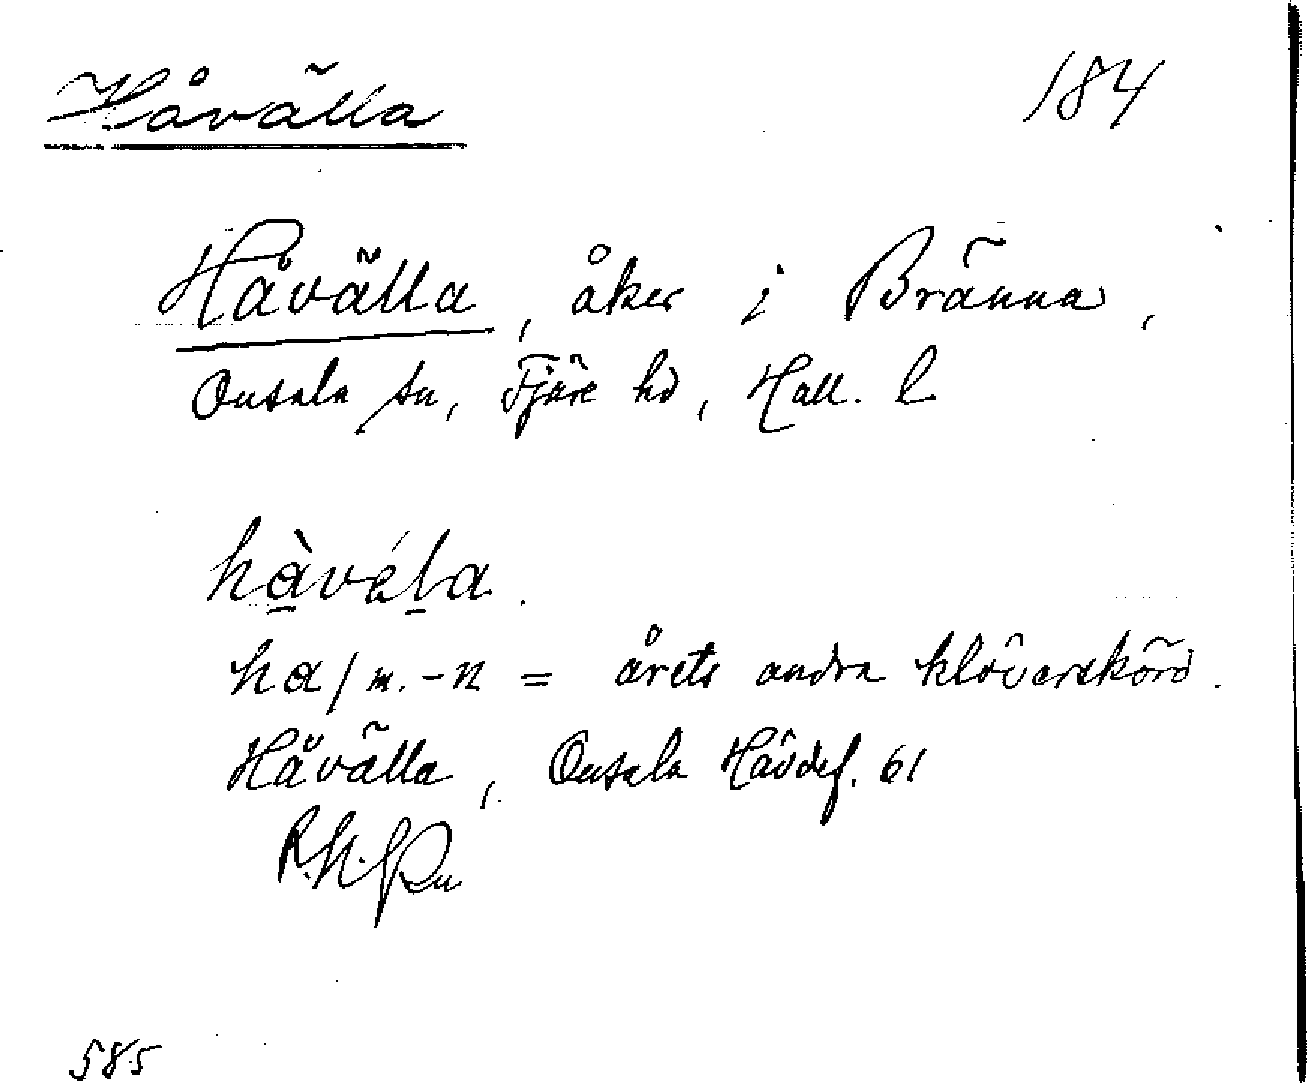 Håvälla
184
Håvälla, åker i Bränna,
Onsala sn, Fjäre hd, Hall. l.
hàvéla.
ha/m. -n = årets andra klöverskörd.
Håvälla, Onsala Hävdef. 61
585